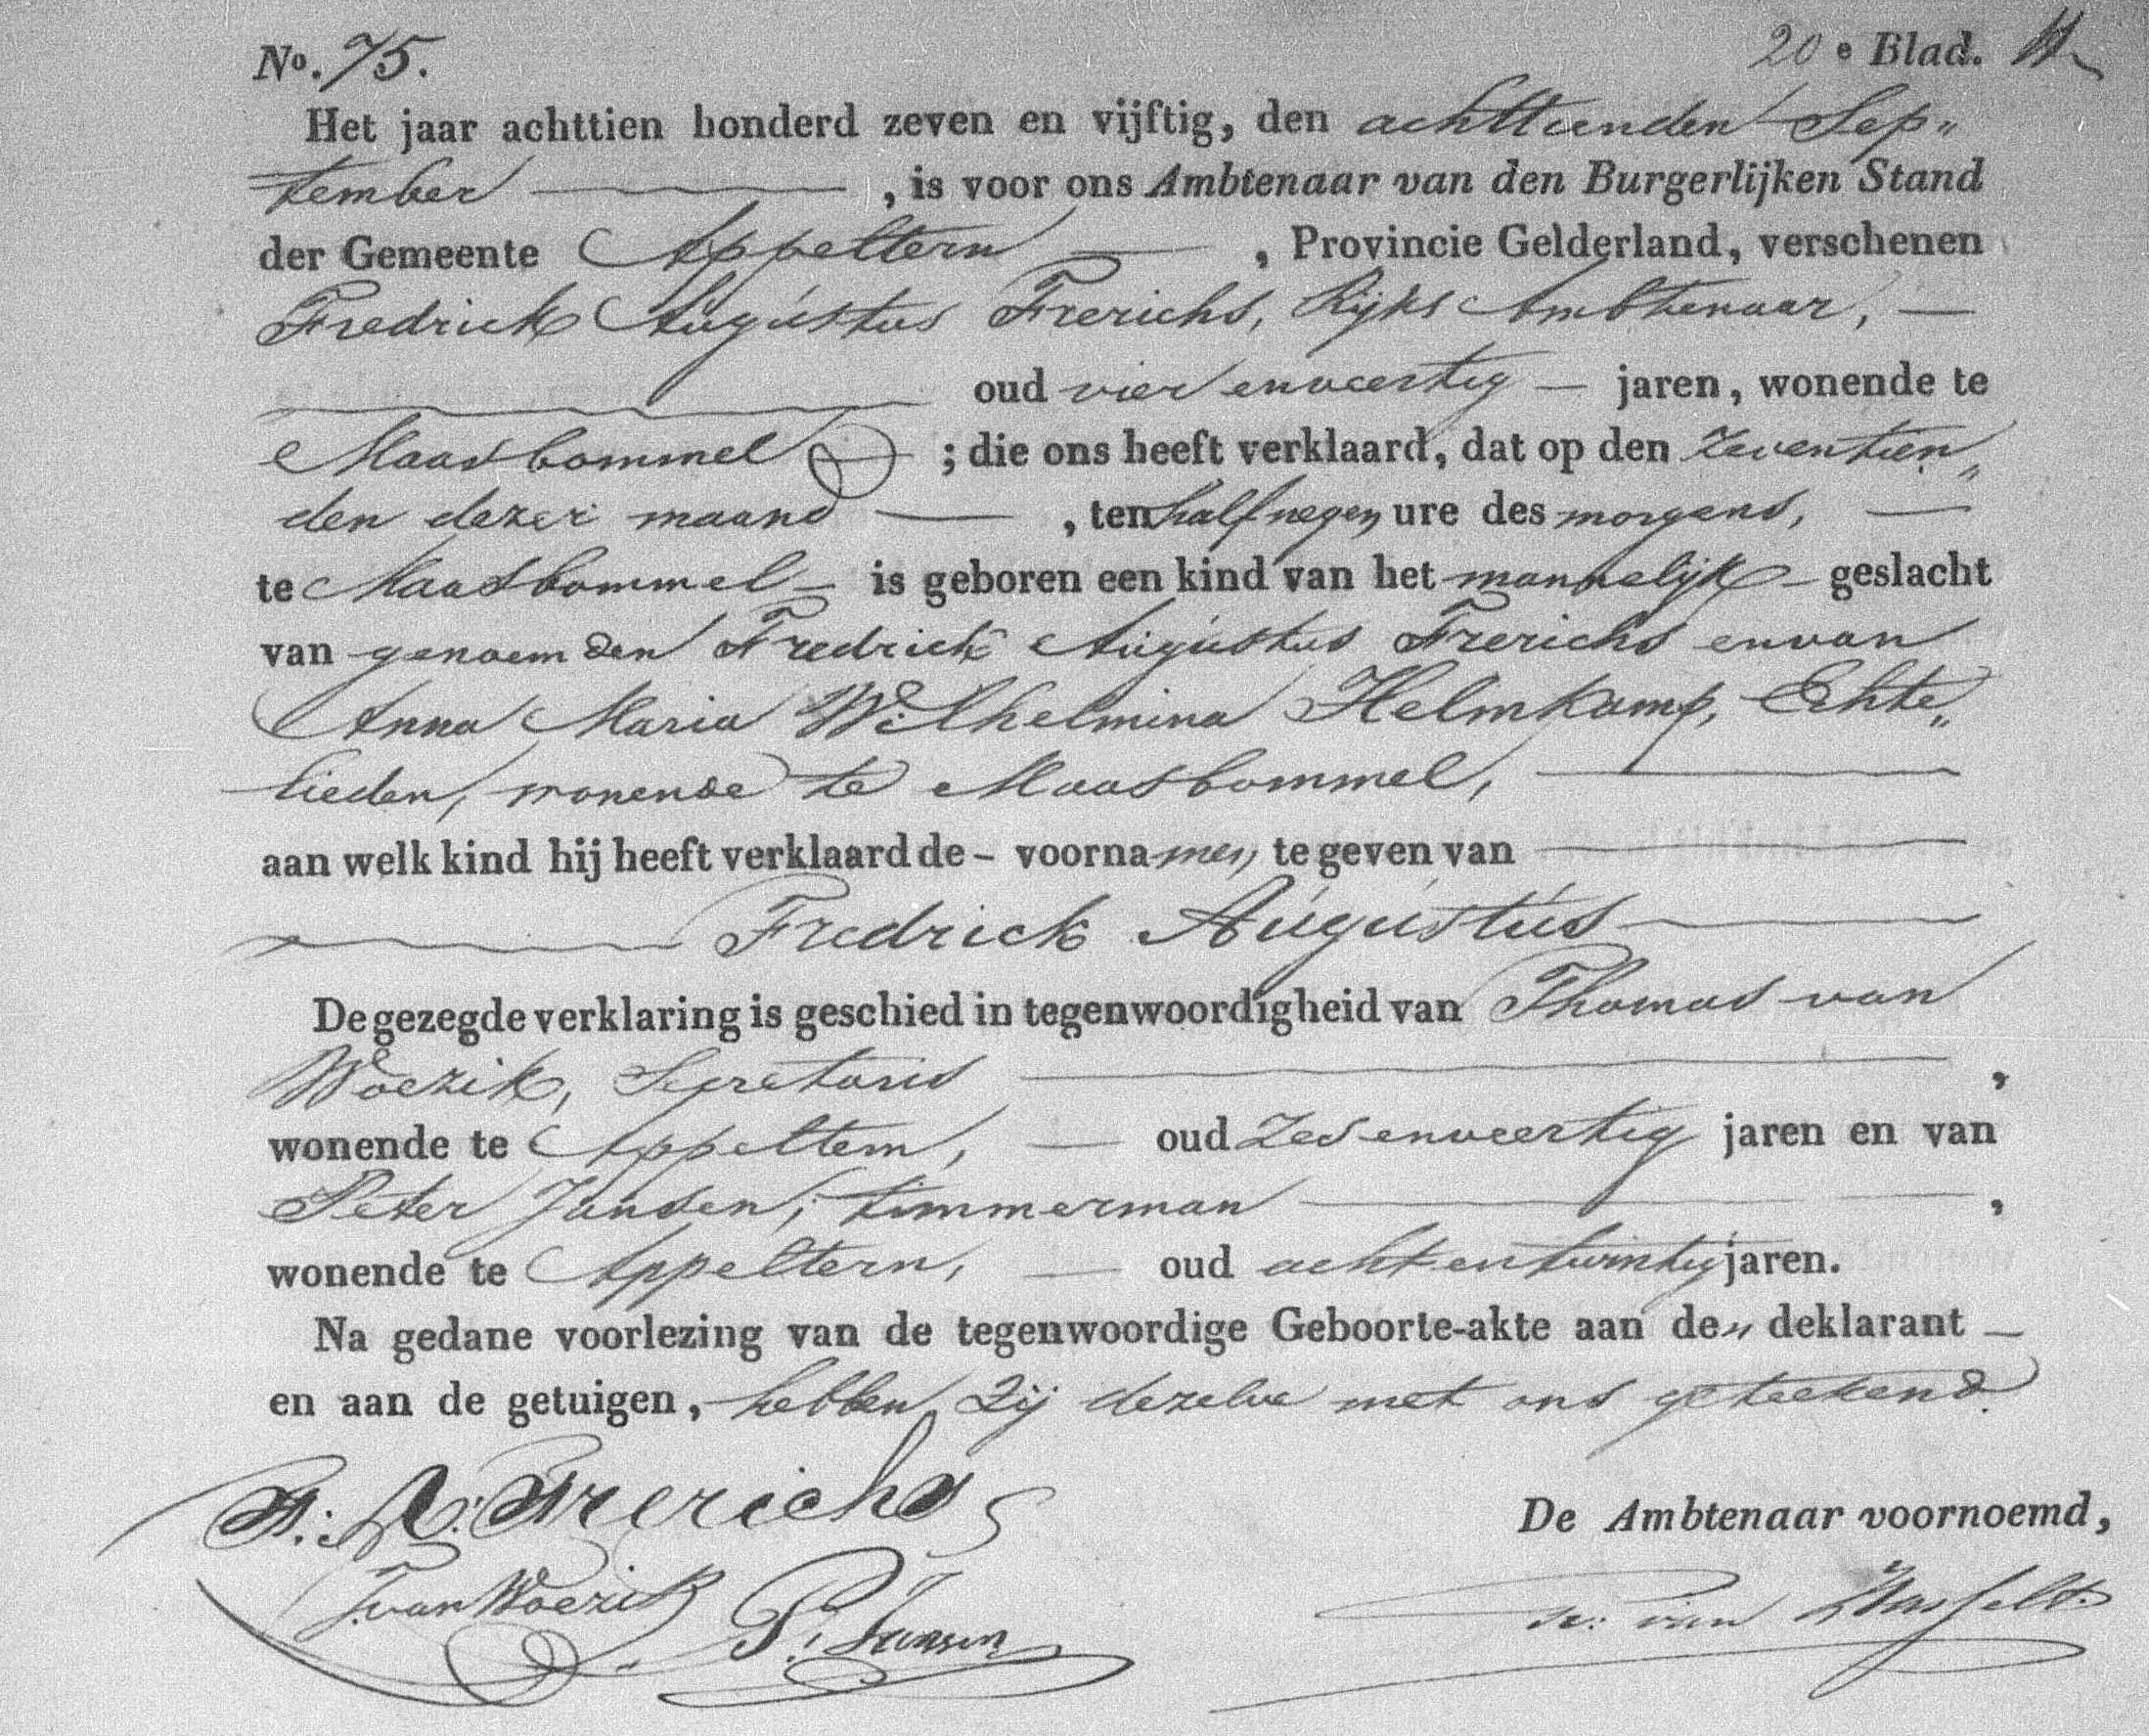 No. 75. 20e Blad.
Het jaar achttien honderd zeven en vijftig, den achttienden Sep„
tember , is voor ons Ambtenaar van den Burgerlijken Stand
der Gemeente Appeltern , Provincie Gelderland, verschenen
Fredrick Augustus Frerichs, Rijks Ambtenaar,
oud vier en veertig jaren, wonende te
Maasbommel ; die ons heeft verklaard, dat op den zeventien„
den dezer maand , ten half negen ure des morgens,
te Maasbommel is geboren een kind van het mannelijk geslacht
van genoemden Fredrick Augustus Frerichs en van
Anna Maria Wilhelmina Helmkamp, Echte„
lieden, wonende te Maasbommel,
aan welk kind hij heeft verklaard de voornamen te geven van
Fredrick Augustus
De gezegde verklaring is geschied in tegenwoordigheid van Thomas van
Woezik, Secretaris ,
wonende te Appeltern, oud zes en veertig jaren en van
Peter Jansen, timmerman ,
wonende te Appeltern, oud acht en twintig jaren.
Na gedane voorlezing van de tegenwoordige Geboorte-akte aan den deklarant
en aan de getuigen, hebben zij dezelve met ons geteekend.
F: A: Frerichs
De Ambtenaar voornoemd,
T. van Woezik P. Jansen van Hasselt.